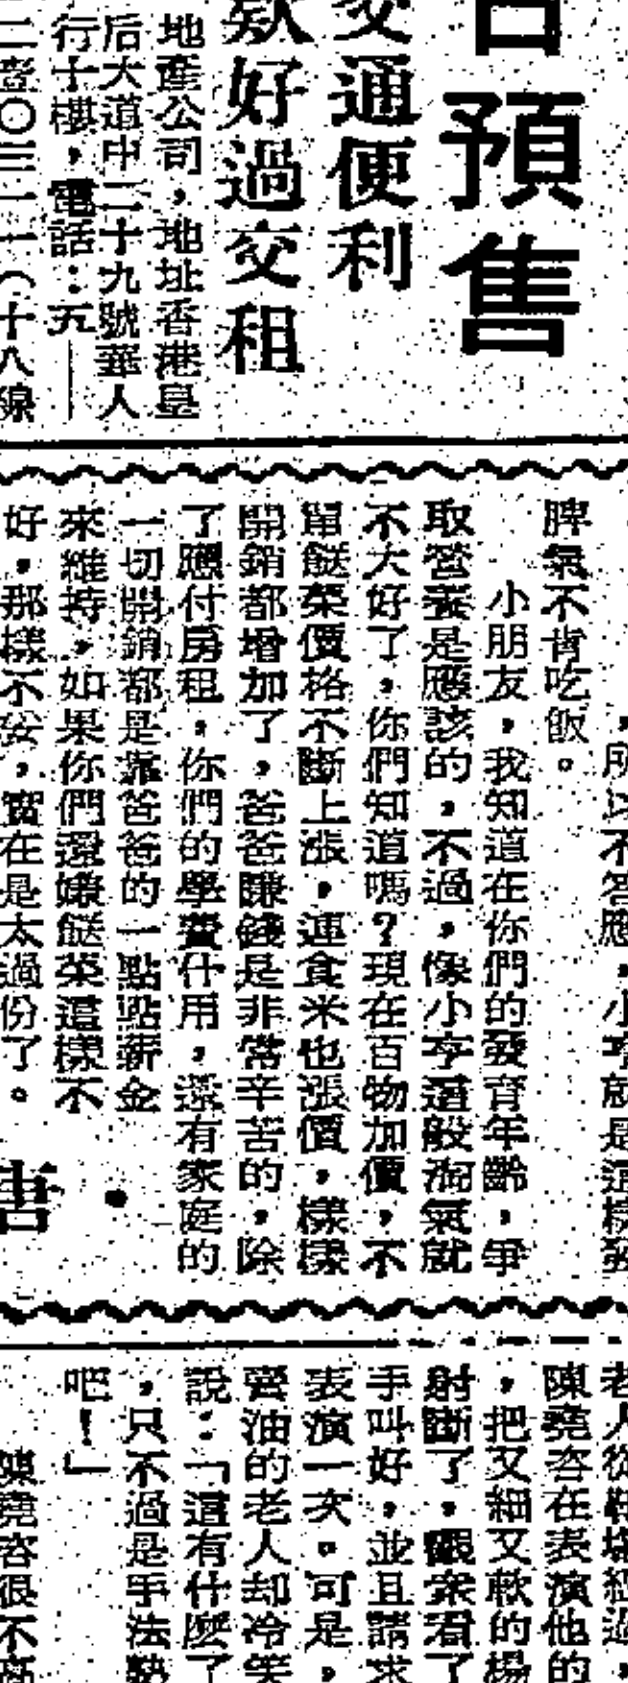 預售
交通便利
欵好過交租
地產公司，地址香港皇
后大道中二十九號華人
行十樓，電話：五——
二壹〇三一一（十八線
，所以不答應，小亨就是這樣發
脾氣不肯吃飯。
小朋友，我知道在你們的發育年齡，爭
取營養是應該的，不過，像小亨這般淘氣就
不大好了，你們知道嗎？現在百物加價，不
單餸菜價格不斷上漲，連食米也漲價，樣樣
開銷都增加了，爸爸賺錢是非常辛苦的，除
了應付房租，你們的學費什用，還有家庭的
一切開銷都是靠爸爸的一點點薪金
來維持，如果你們還嫌餸菜這樣不
好，那樣不妥，實在是太過份了。
老人從 經過，
陳堯咨在表演他的
，把又細又軟的楊
射斷了，觀衆看了
手叫好，並且請求
表演一次。可是，
賣油的老人却冷笑
說：「這有什麽了
，只不過是手法熟
吧！」
陳堯咨很不高